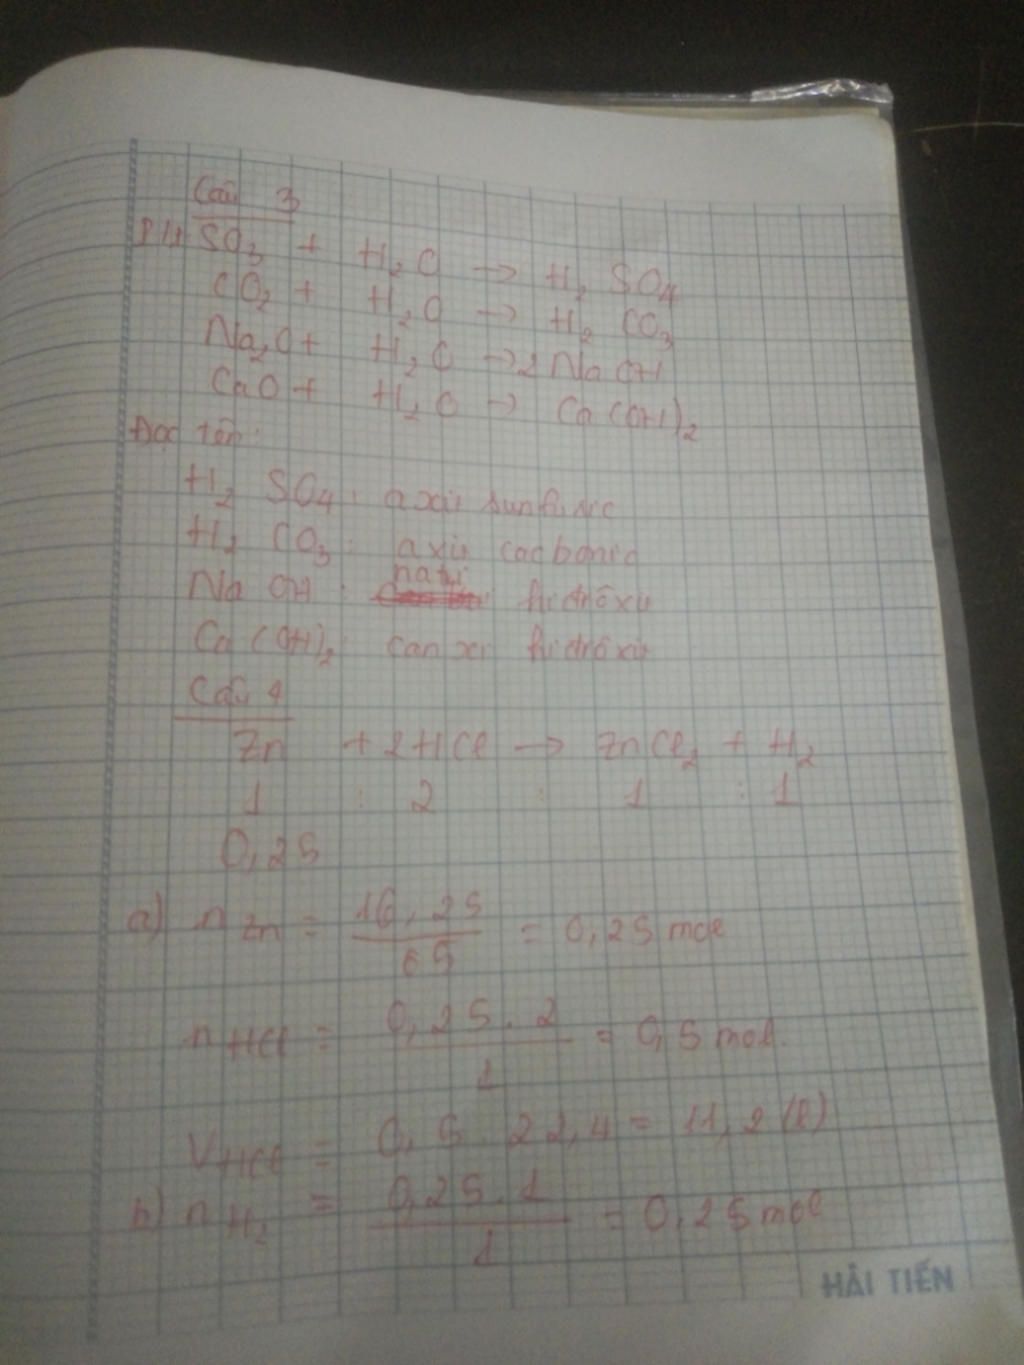 Câu 3
PTHH SO3 + H2O → H2SO4
CO2 + H2O → H2CO3
Na2O + H2O → 2NaOH
CaO + H2O → Ca(OH)2
Đọc tên:
H2SO4: axit sunfuric
H2CO3: axit cacbonic
NaOH: natri hiđrôxit
Ca(OH)2: canxi hiđrôxit
Câu 4
Zn + 2HCl → ZnCl2 + H2
1 : 2 : 1 : 1
0,25
a) nZn = 16,25/65 = 0,25 mol
nHCl = 0,25.2/1 = 0,5 mol.
VHCl = 0,5.22,4 = 11,2 (l)
b) nH2 = 0,25.1/1 = 0,25 mol
HẢI TIẾN